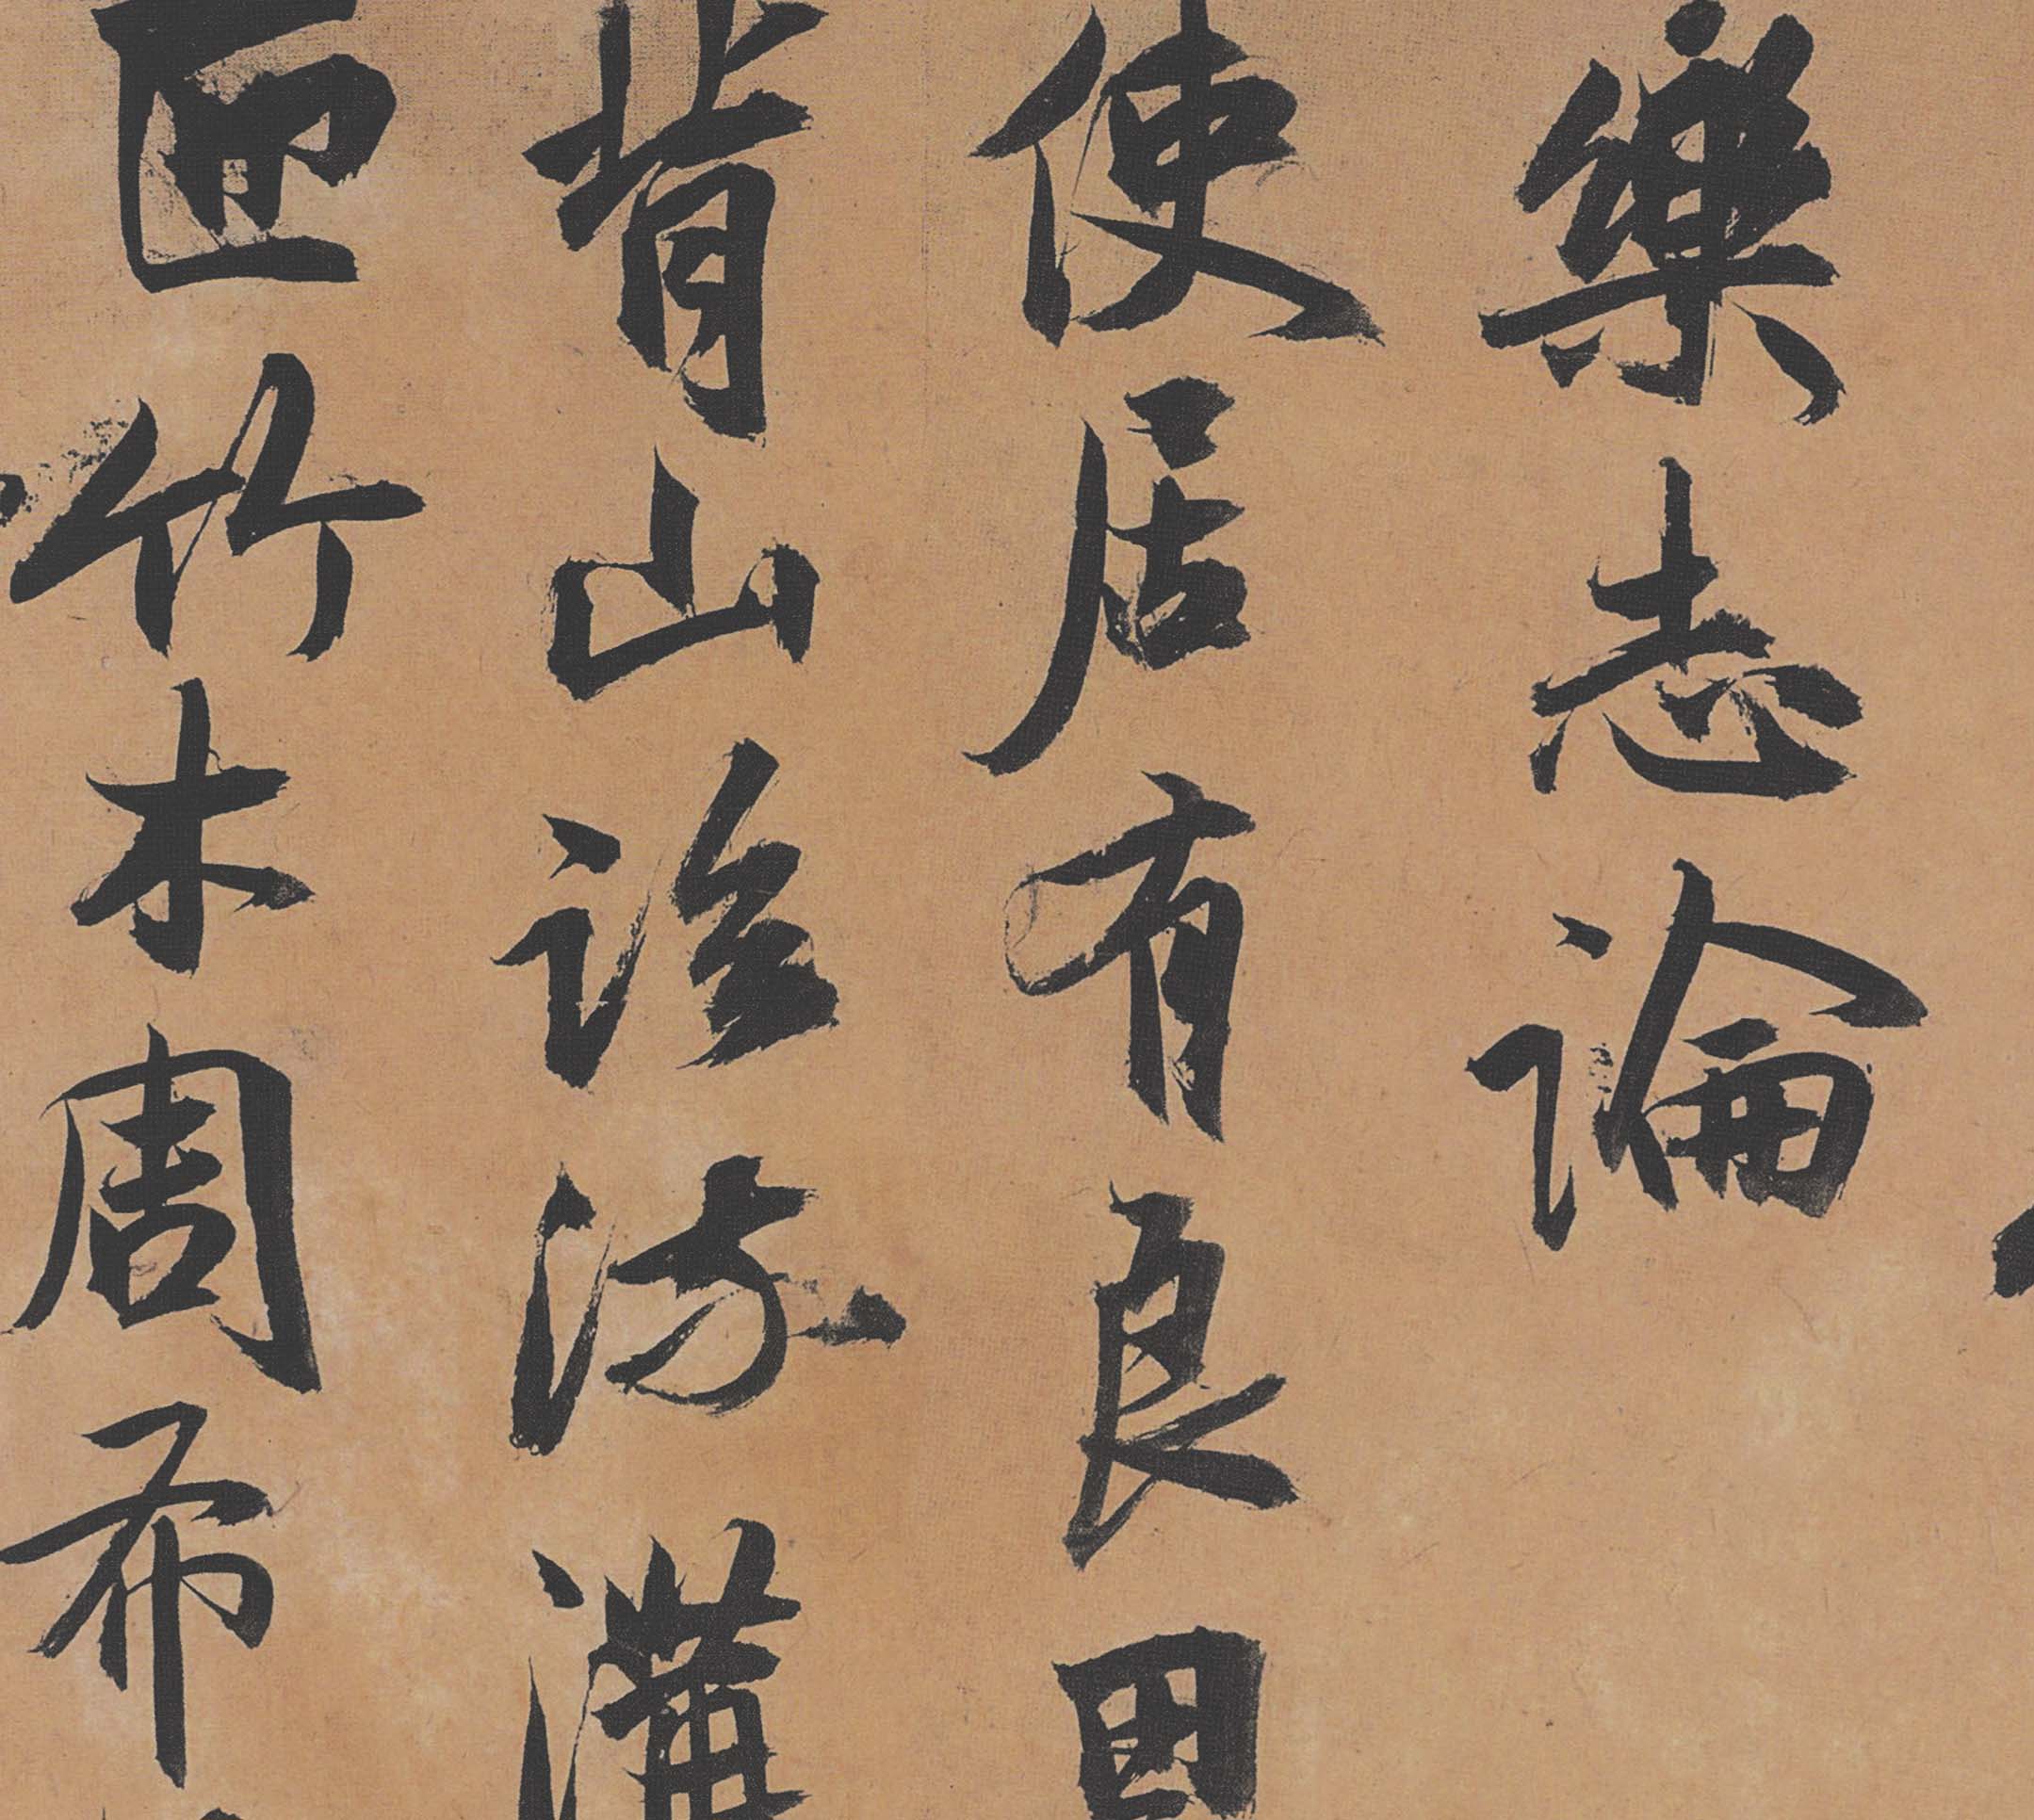 樂志論
使居有良田
背山臨流溝
匝竹木周布